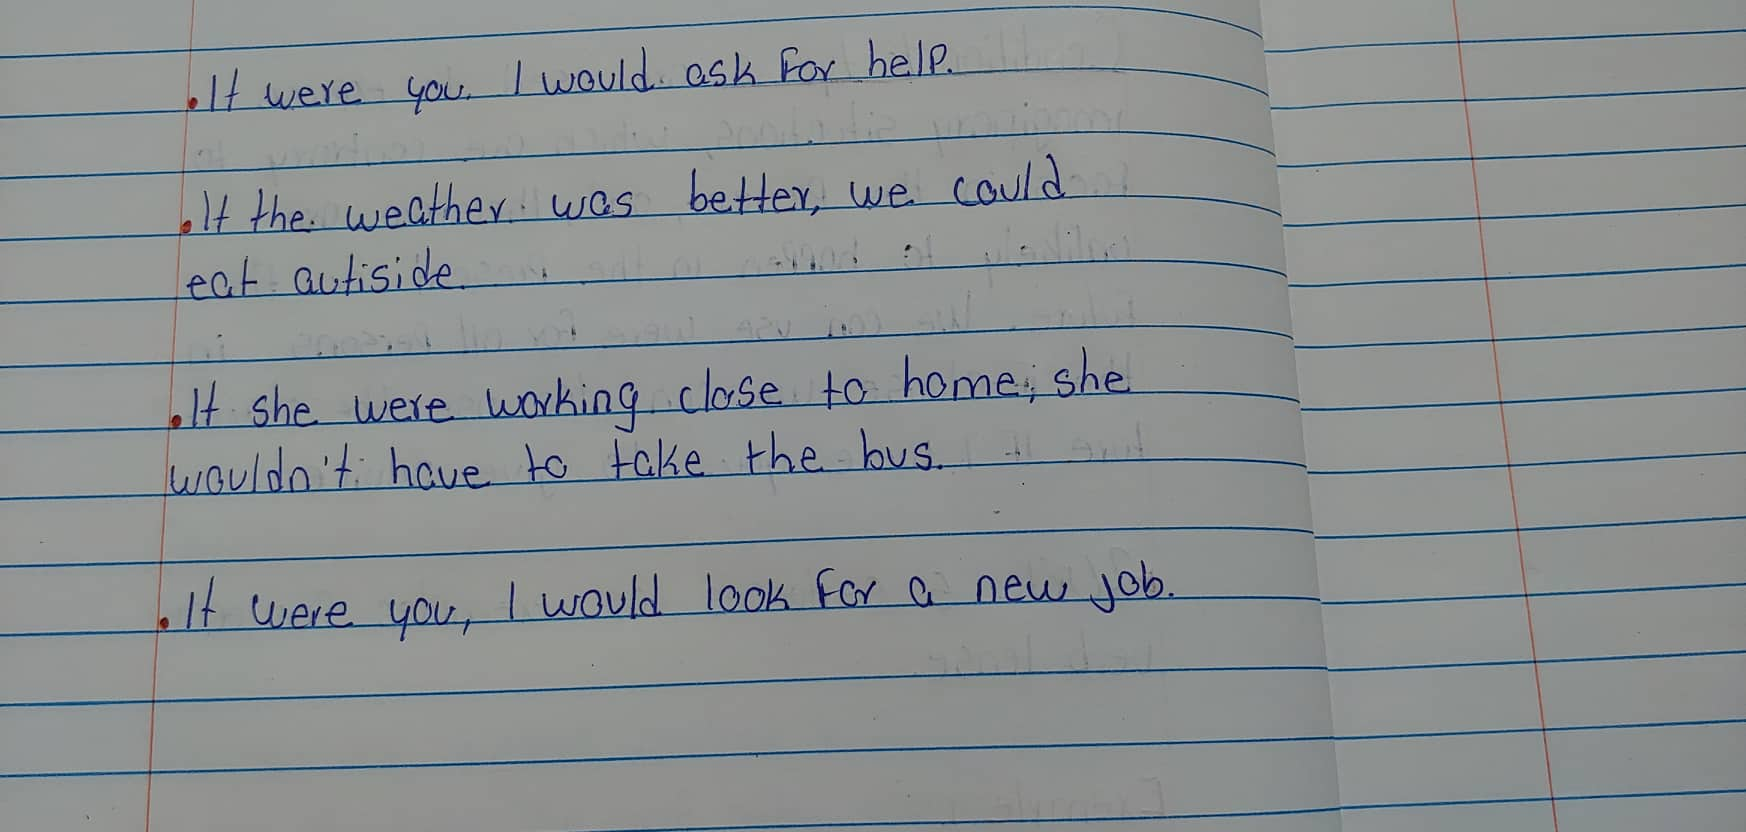 .If were you, I would ask for help.
.If the weather was better, we could
eat autiside.
.If she were working close to home, she
wouldn't have to take the bus.
.If were you, I would look for a new job.